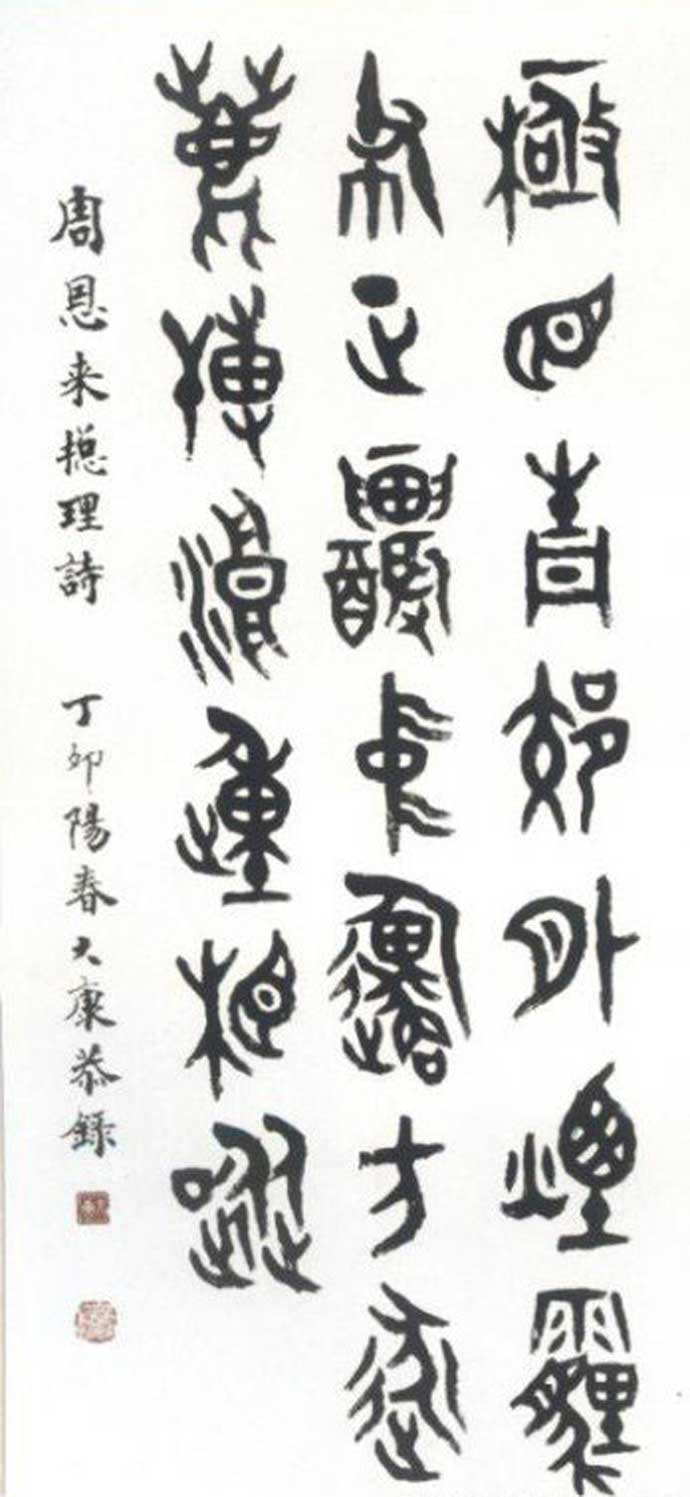 極目青郊外煙霾
布正濃中原方逐
鹿博浪踵相蹤
周恩来摠理詩 丁卯陽春大康恭錄